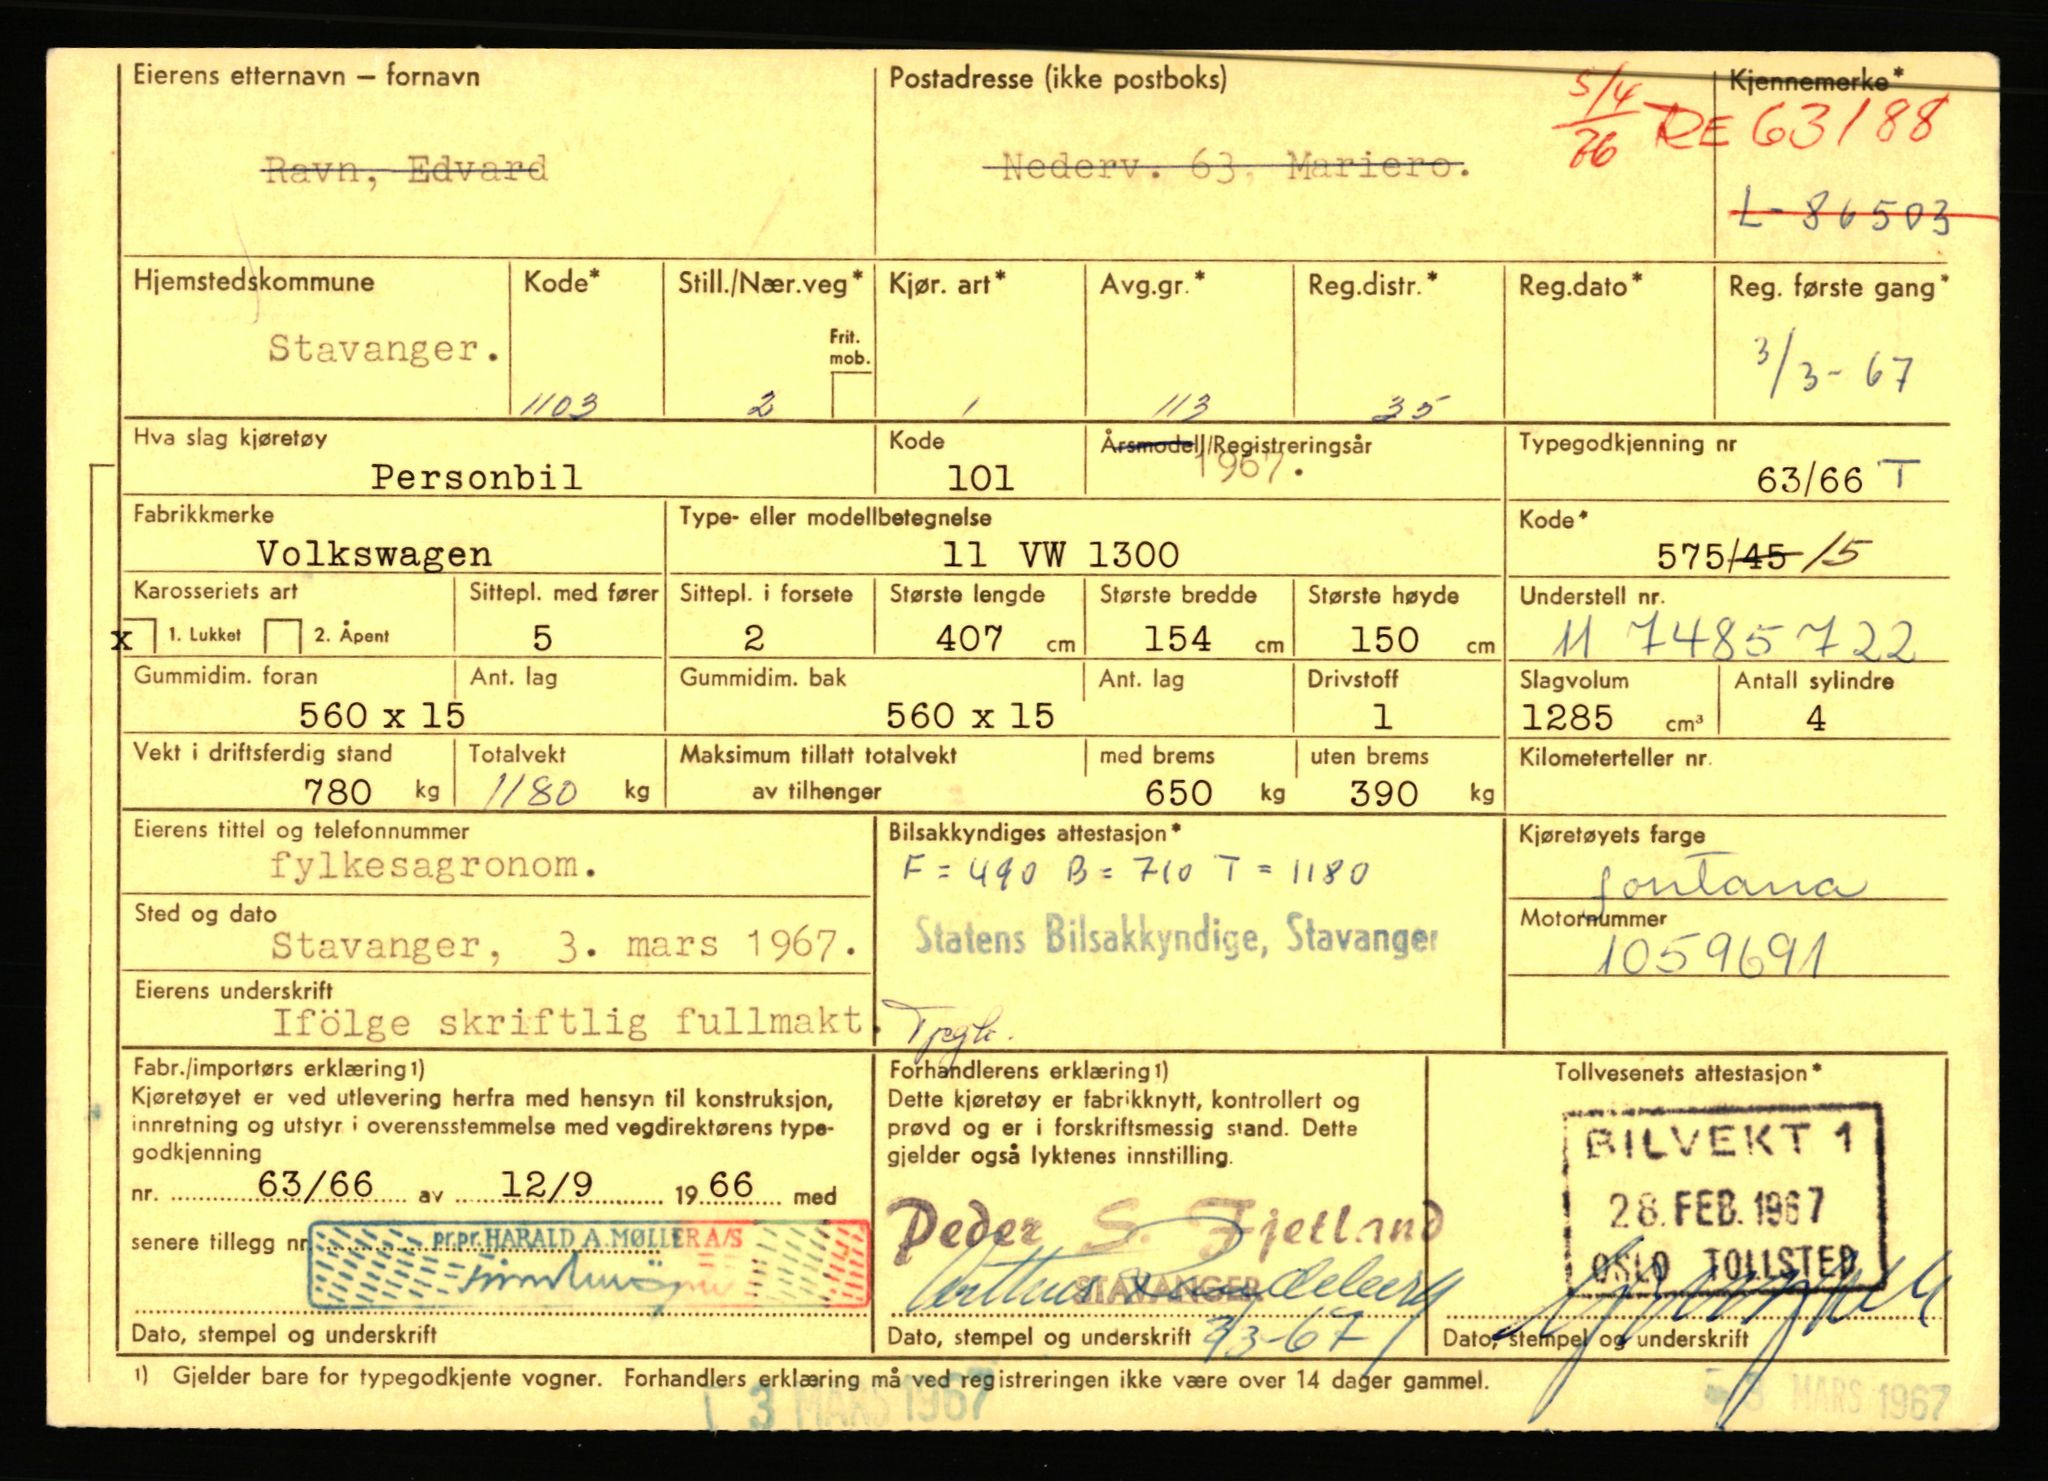 Eierens etternavn – fornavn
Ravn, Edvard
Postadresse (ikke postboks)
Nederv. 63, Mariero.
5/4 76
Kjennemerke*
RE 63188
L-86503
Hjemstedskommune Kode* Still./Nær.veg* Kjør. art* Avg.gr.* Reg.distr.* Reg.dato* Reg. første gang*
Frit. mob.
Stavanger. 1103 2 1 113 35 3/3-67
Hva slag kjøretøy Kode Årsmodell/Registreringsår Typegodkjenning nr
Personbil 101 1967. 63/66 T
Fabrikkmerke Type- eller modellbetegnelse Kode*
Volkswagen 11 VW 1300 575/45 15
Karosseriets art Sittepl. med fører Sittepl. i forsete Største lengde Største bredde Største høyde Understell nr.
x 1. Lukket 2. Åpent 5 2 407 cm 154 cm 150 cm 11 7485722
Gummidim. foran Ant. lag Gummidim. bak Ant. lag Drivstoff Slagvolum Antall sylindre
560 x 15 560 x 15 1 1285 cm³ 4
Vekt i driftsferdig stand Totalvekt Maksimum tillatt totalvekt med brems uten brems Kilometerteller nr.
780 kg 1180 kg av tilhenger 650 kg 390 kg
Eierens tittel og telefonnummer Bilsakkyndiges attestasjon* Kjøretøyets farge
fylkesagronom. F = 490 B = 710 T = 1180 fontana
Sted og dato Motornummer
Stavanger, 3. mars 1967. Statens Bilsakkyndige, Stavanger 1059691
Eierens underskrift
Ifölge skriftlig fullmakt.
Fabr./importørs erklæring1)
Kjøretøyet er ved utlevering herfra med hensyn til konstruksjon,
innretning og utstyr i overensstemmelse med vegdirektørens type-
godkjenning
nr. 63/66 av 12/9 1966 med
senere tillegg nr.
pr.pr. HARALD A. MØLLER A/S
Dato, stempel og underskrift
Forhandlerens erklæring1)
Dette kjøretøy er fabrikknytt, kontrollert og
prøvd og er i forskriftsmessig stand. Dette
gjelder også lyktenes innstilling.
Peder S. Fjetland
STAVANGER
Dato, stempel og underskrift 3/3-67
Tollvesenets attestasjon*
BILVEKT 1
28. FEB. 1967
OSLO TOLLSTED
Dato, stempel og underskrift
1) Gjelder bare for typegodkjente vogner. Forhandlers erklæring må ved registreringen ikke være over 14 dager gammel.
3 MARS 1967
3 MARS 1967